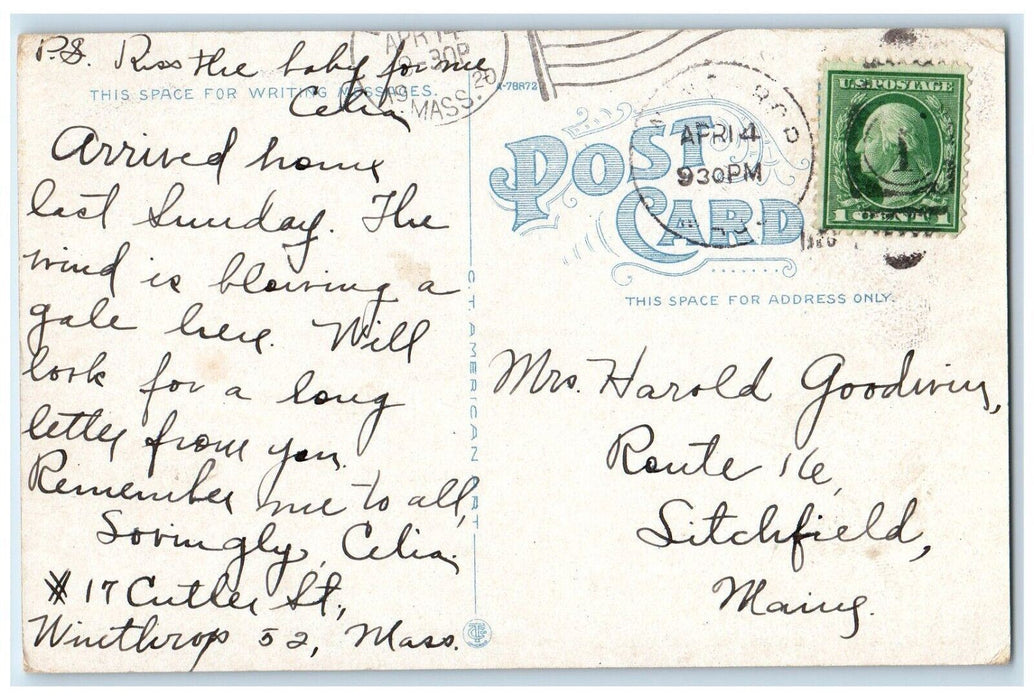 P.S. Kiss the baby for me
Celia
THIS SPACE FOR WRITING MESSAGES.
Arrived home
last Sunday. The
wind is blowing a
gale here. Will
look for a long
letter from you.
Remember me to all,
Lovingly, Celia.
#17 Cutler St.,
Winthrop 52, Mass.
APR 14
30P
19 20
MASS.
A-78872
C.T. AMERICAN ART
POST
CARD
APR 14
930PM
U.S. POSTAGE
1 1
THIS SPACE FOR ADDRESS ONLY.
Mrs. Harold Goodwin,
Route 16,
Litchfield,
Maine.